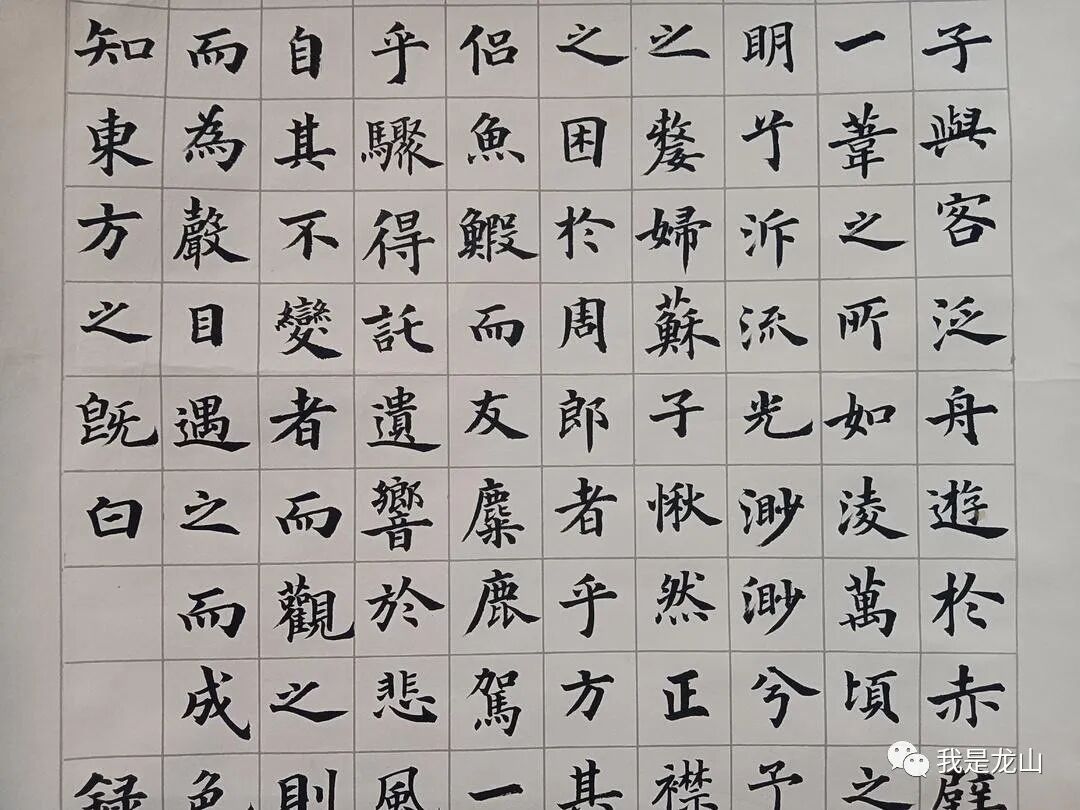 子與客泛舟遊於赤壁
一葦之所如淩萬頃之
明兮泝流光渺渺兮予
之嫠婦蘇子愀然正襟
之困於周郎者乎方其
侶魚鰕而友麋鹿駕一
乎驟得託遺響於悲風
自其不變者而觀之則
而為聲目遇之而成色
知東方之既白 錄
我是龙山